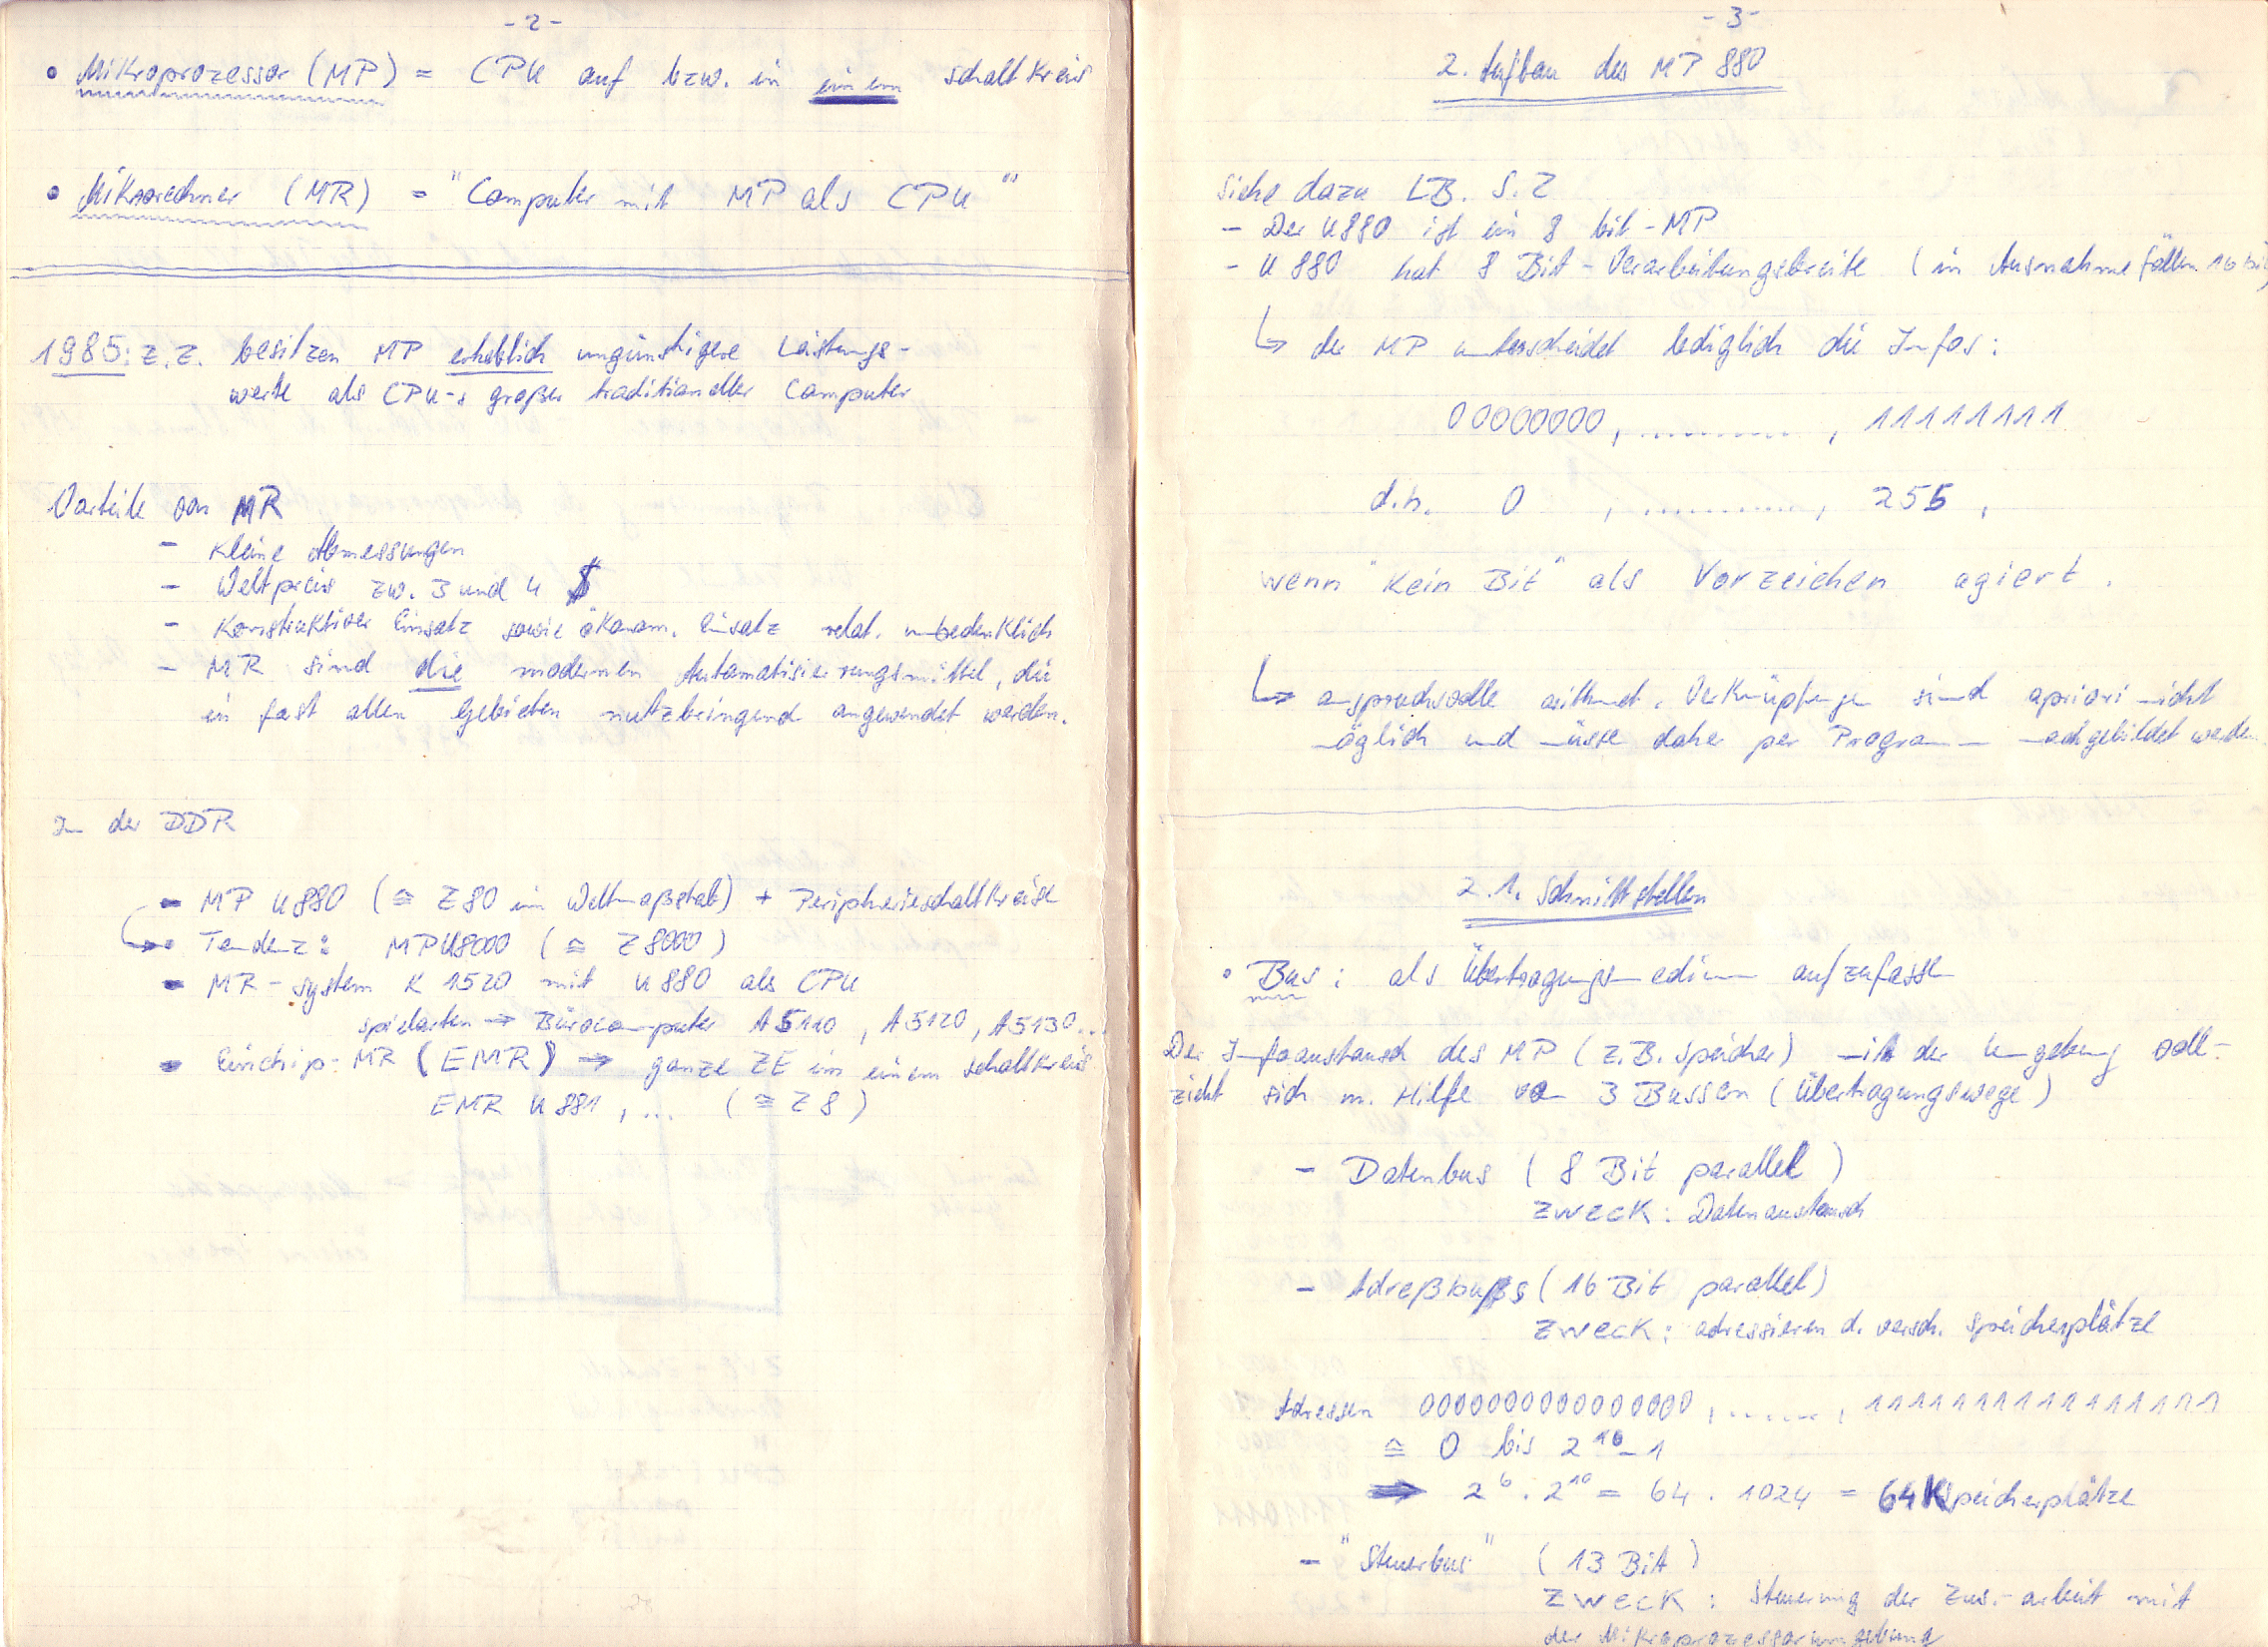 -2-
• Mikroprozessor (MP) = CPU auf bzw. in einem Schaltkreis
• Mikrorechner (MR) = "Computer mit MP als CPU"
1985: z.Z. besitzen MP erheblich ungünstigere Leistungs-
werte als CPU-s großer traditioneller Computer
Vorteile von MR
- Kleine Abmessungen
- Weltpreis zw. 3 und 4 $
- Konstruktiver Einsatz sowie ökonom. Einsatz relat. unbedenklich
- MR sind die modernen Automatisierungsmittel, die
in fast allen Gebieten nutzbringend angewendet werden.
In der DDR
- MP U880 (≙ Z80 im Weltmaßstab) + Peripherieschaltkreise
↳ Tendenz: MPU8000 (≙ Z8000)
- MR-System K 1520 mit U880 als CPU
Spielarten → Bürocomputer A5110, A5120, A5130...
- Einchip-MR (EMR) → ganze ZE in einem Schaltkreis
EMR U881, ... (≙ Z8)
-3-
2. Aufbau des MP 880
Siehe dazu LB. S. 2
- Der U880 ist ein 8 bit-MP
- U 880 hat 8 Bit-Verarbeitungsbreite (in Ausnahmefällen 16 bit)
↳ der MP unterscheidet lediglich die Infos:
00000000, .........., 11111111
d.h. 0 , .........., 255,
wenn "Kein Bit" als Vorzeichen agiert.
↳ anspruchsvolle arithmet. Verknüpfungen sind apriori nicht
möglich und müssen daher per Programm nachgebildet werden
2.1. Schnittstellen
• Bus: als Übertragungsmedium aufzufassen
Der Infoaustausch des MP (z.B. Speicher) mit der Umgebung voll-
zieht sich m. Hilfe von 3 Bussen (Übertragungswege)
- Datenbus (8 Bit parallel)
Zweck: Datenaustausch
- Adreßbus (16 Bit parallel)
Zweck: adressieren d. versch. Speicherplätze
Adressen 0000000000000000, ......, 1111111111111111
≙ 0 bis 2^16-1
⇒ 2^6 · 2^10 = 64 · 1024 = 64K Speicherplätze
- "Steuerbus" (13 Bit)
Zweck: Steuerung der Zus.-arbeit mit
der Mikroprozessorumgebung